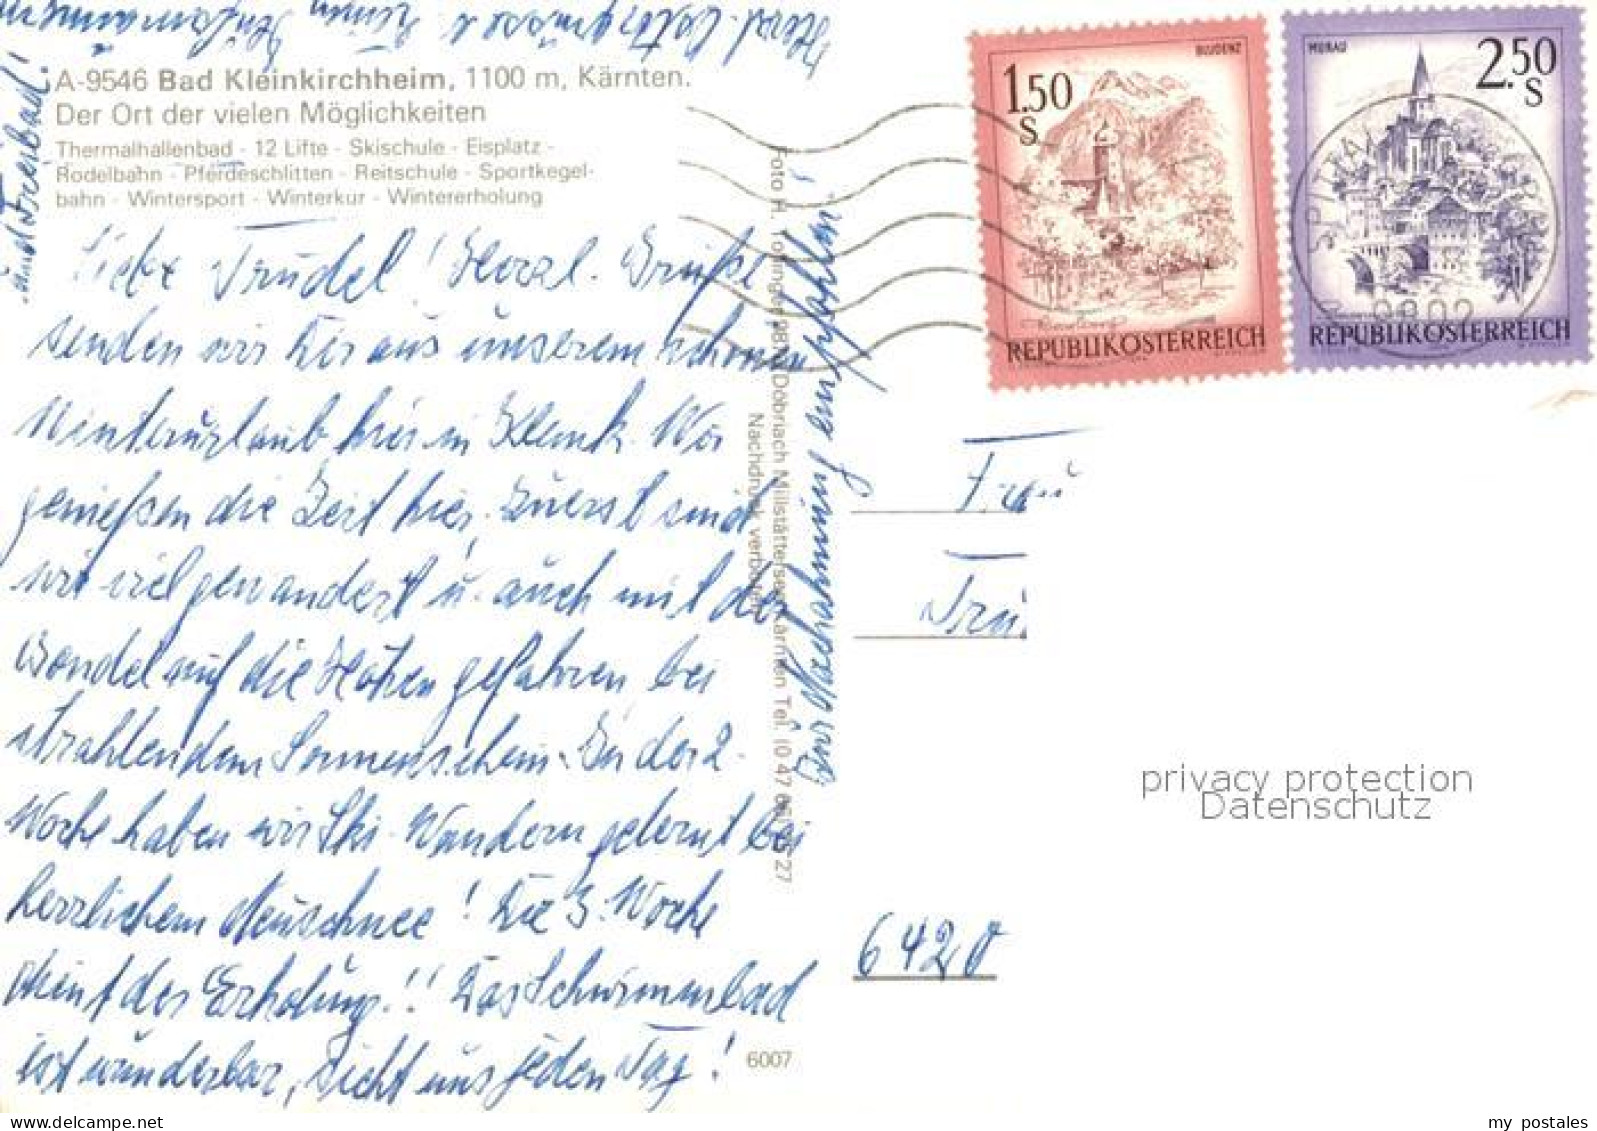 A-9546 Bad Kleinkirchheim, 1100 m, Kärnten.
Der Ort der vielen Möglichkeiten
Thermalhallenbad - 12 Lifte - Skischule - Eisplatz -
Rodelbahn - Pferdeschlitten - Reitschule - Sportkegel-
bahn - Wintersport - Winterkur - Wintererholung
Liebe Trudel! Herzl. Grüße
senden wir Dir aus unserem schönen
Winterurlaub hier in Kleink. Wir
genießen die Zeit hier. Zuerst sind
wir viel gewandert u. auch mit der
Gondel auf die Höhen gefahren bei
strahlendem Sonnenschein. In der 2.
Woche haben wir Ski-Wandern gelernt bei
herrlichem Neuschnee! Die 3. Woche
dient der Erholung!! Das Schwimmbad
ist wunderbar, zieht uns jeden Tag!
und Freibad!
Zur Nachahmung empfohlen!
Herzl.
Foto H. 98 Döbriach Millstättersee Kärnten Tel. (0 47
Nachdruck verboten
6007
1.50
S
BLUDENZ
REPUBLIK ÖSTERREICH
2.50
S
MURAU
REPUBLIK ÖSTERREICH
SPITTAL
9802
Frau
Tru
6420
privacy protection
Datenschutz
my postales